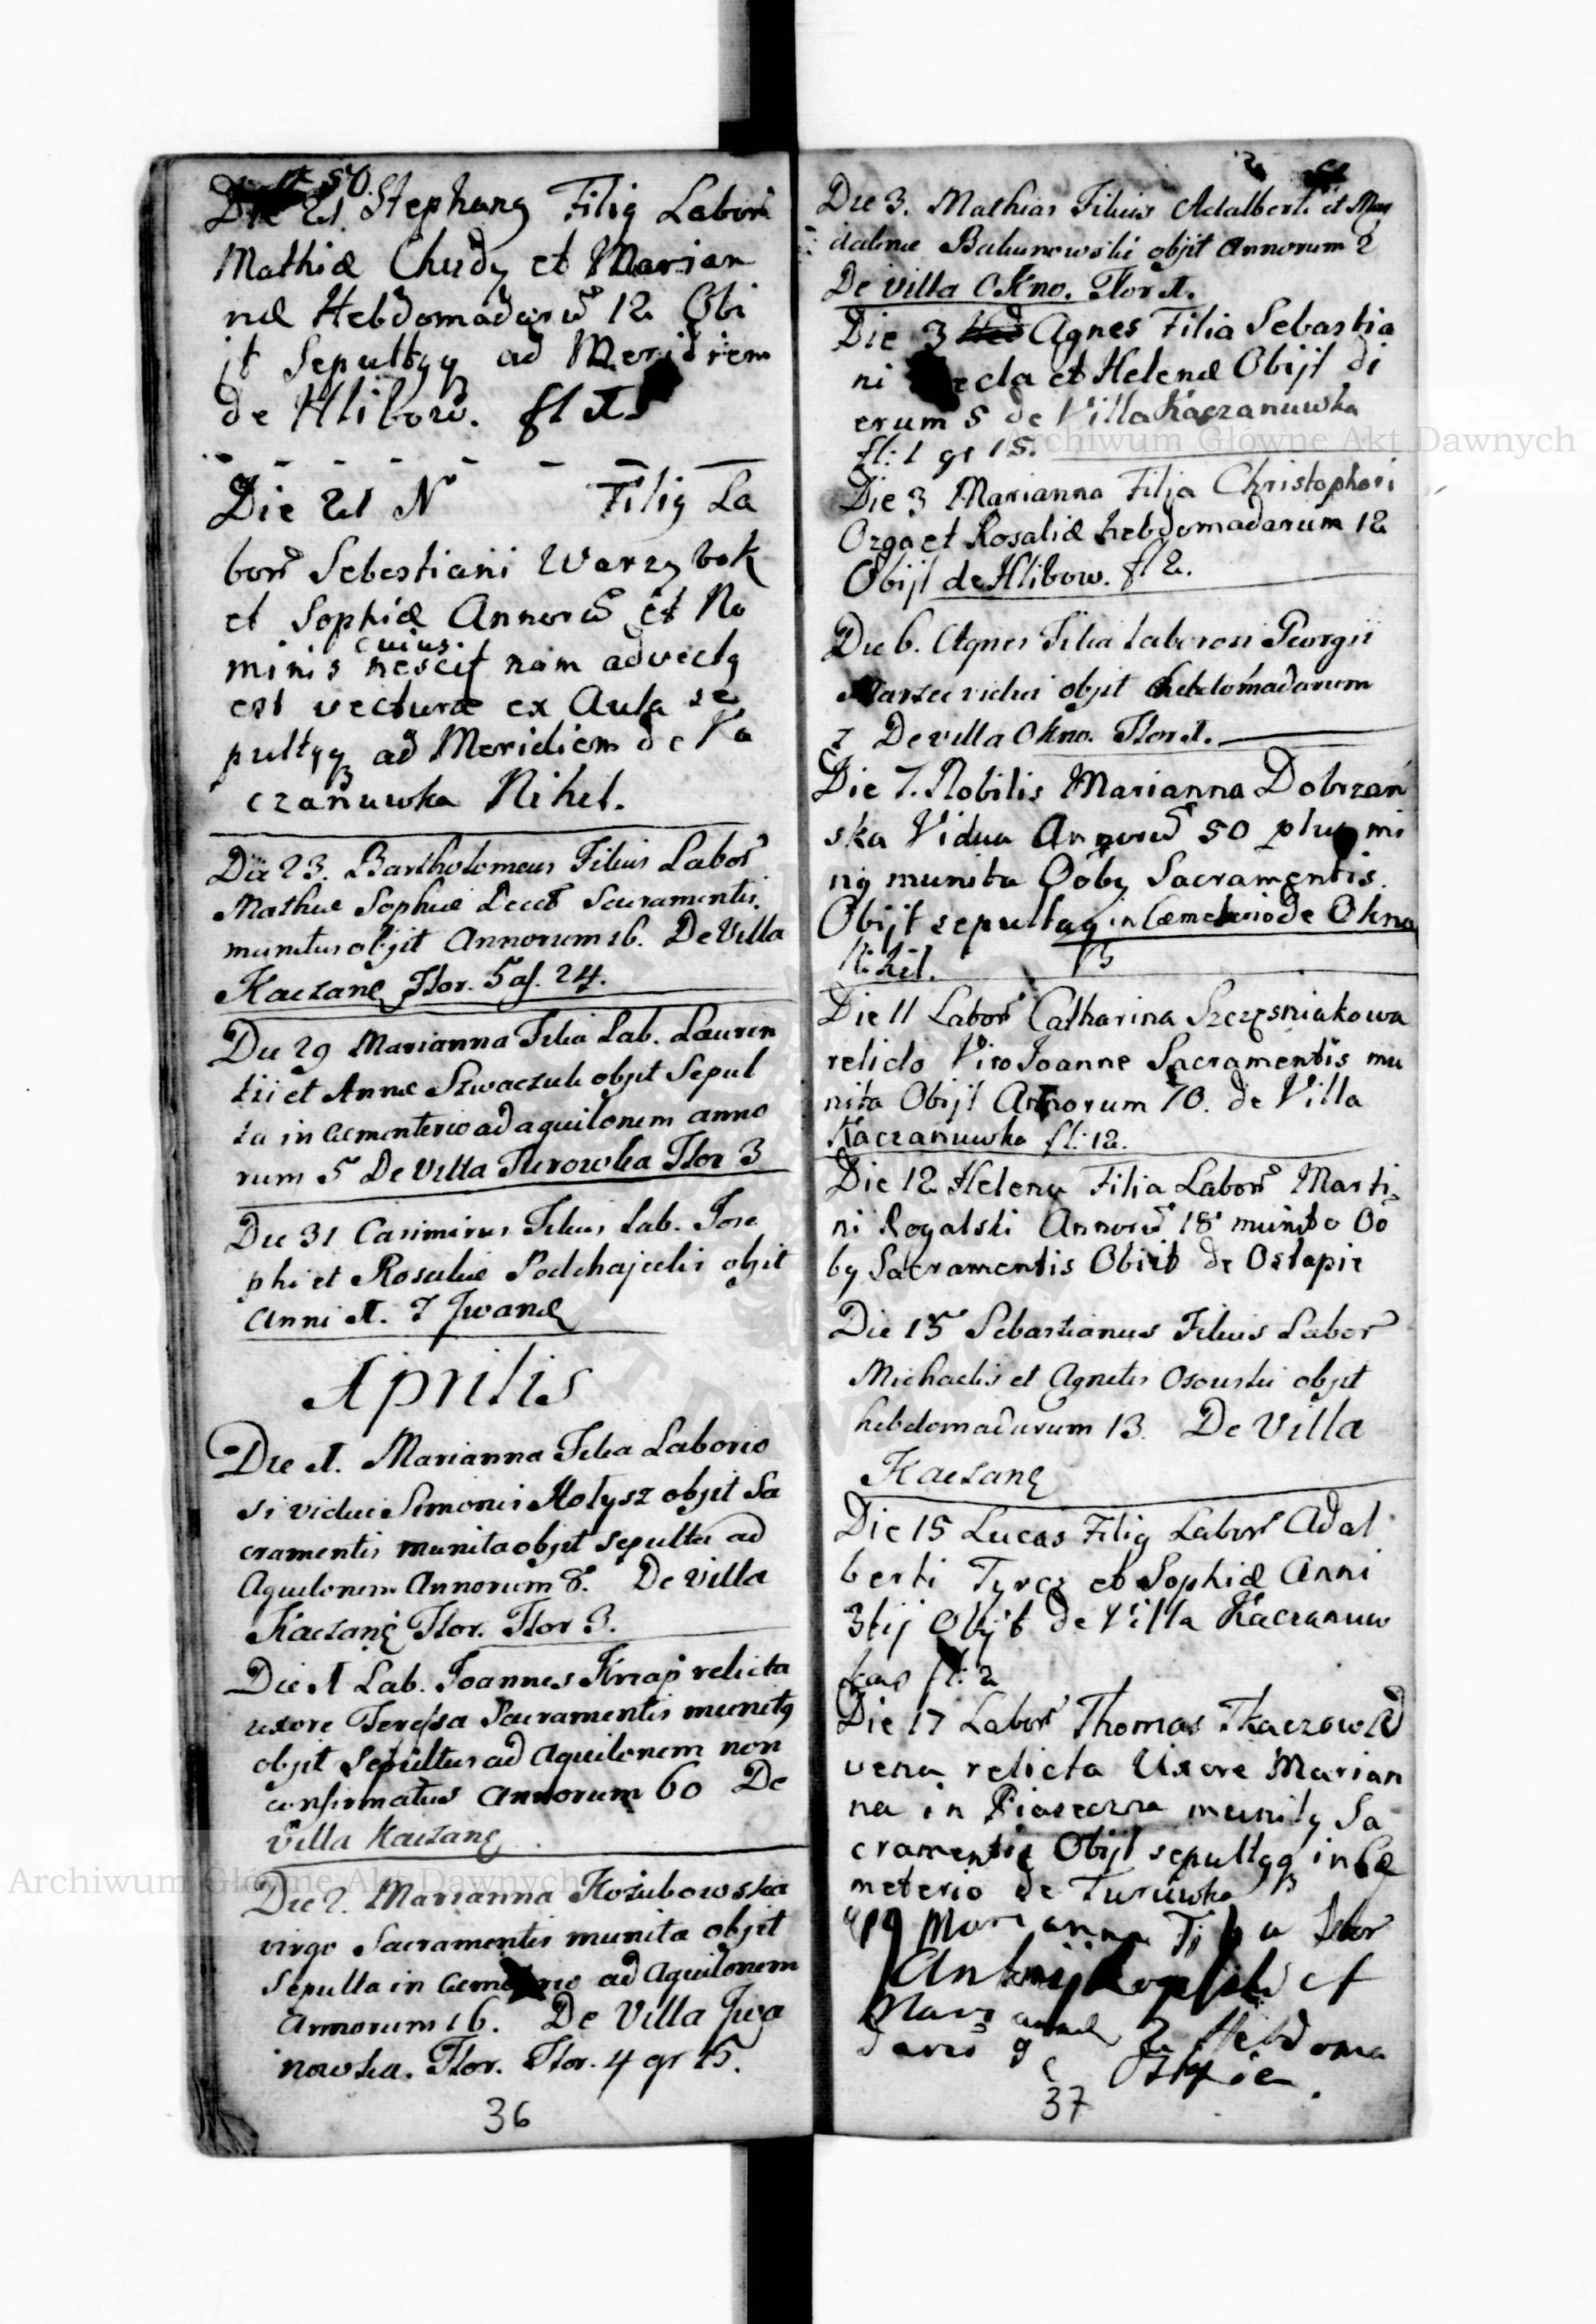 50.
Die 21. Stephang Filig Labor
Mathiæ Chudy et Marian
næ Hebdomadarū 12 Obi
jt Sepultgq ad Meridiem
de Hlibow. fl 1
Die 21 N Filig La
bor Sebestiani Warzybok
et Sophiæ Annorū et No
cuius
minis nescit nam advectg
est vecturæ ex Aula se
pultgq ad Meridiem de Ka
czanuwka Nihil.
Die 23. Bartholomeus Filius Labor
Mathiæ Sophiæ Decet Sacramentis
munitus objit Annorum 16. De Villa
Kaczanę Flor. 5 af. 24.
Die 29 Marianna Filia Lab. Lauren
tii et Annæ Szwaczuk objit Sepul
ta in Cementerio ad aquilonem anno
rum 5 De Villa Turowka Flor 3
Die 31 Casimirus Filius Lab. Jose
phi et Rosaliæ Podhajecki objit
Anni 1. 7 Jwanę
Aprilis
Die 1. Marianna Filia Laborio
si vidui Simonis Holysz objit Sa
cramentis munita objit sepulta ad
Aquilonem Annorum 8. De villa
Kaczanę Flor. Flor 3.
Die 1 Lab. Joannes Knap relicta
uxore Teressa Sacramentis munitg
objit Sepultus ad Aquilonem non
confirmatus Annorum 60 De
Villa Kaczanę
Die 2. Marianna Kozubowska
virgo Sacramentis munita objit
Sepulta in Cemeterio ad Aquilonem
Annorum 16. De Villa Jwa
nowka. Flor. Flor. 4 gr 15.
36
Die 3. Mathias Filius Adalberti et Mag
dalenæ Bakunowski objit Annorum 2
De villa Okno. Flor 1.
Die 3 Agnes Filia Sebastia
ni et Helenæ Obijt di
erum 5 de Villa Kaczanuwka
fl: 1 gr 15.
Die 3 Marianna Filia Christophori
Ozga et Rosaliæ hebdomadarum 12
Obijt de Hlibow. fl 2.
Die 6. Agnes Filia Laborosi Georgii
vidui objit hebdomadarum
7 De villa Okno. Flor 1.
Die 7. Nobilis Marianna Dobrzań
ska Vidua Annorū 50 plus mi
ng munita Ooby Sacramentis
Obijt sepultag in Cæmeterio de Okno
Nihil.
Die 11 Labor Catharina Szczęsniakowa
relicto Viro Joanne Sacramentis mu
nita Obijt Annorum 70. de Villa
Kaczanuwka fl: 12.
Die 12 Helena Filia Labor Marti
ni Rogalski Annorū 18 munita Oo
by Sacramentis Obiit de Ostapie
Die 15 Sebastianus Filius Labor
Michaelis et Agnetis Osowski objit
hebdomadarum 13. De Villa
Kaczanę
Die 15 Lucas Filig Labor Adal
berti Tyrcz et Sophiæ Anni
3tij Obijt de Villa Kaczanuw
kao fl: 2
Die 17 Labor Thomas Tkaczow Ad
vena relicta Uxore Marian
na in Piaseczna munitg Sa
cramentis Obijt sepultgq in Cæ
meterio de Turuwka
19 Marianna Filia Labor
Antonij et
Mariannæ 2 Hebdoma
darū 9 Ostapie.
37
Archiwum Główne Akt Dawnych
Archiwum Główne Akt Dawnych